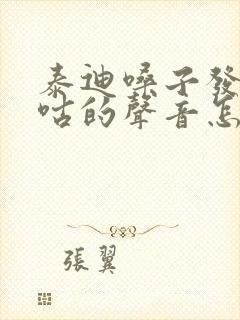 泰迪嗓子發
咕的聲音怎
張翼